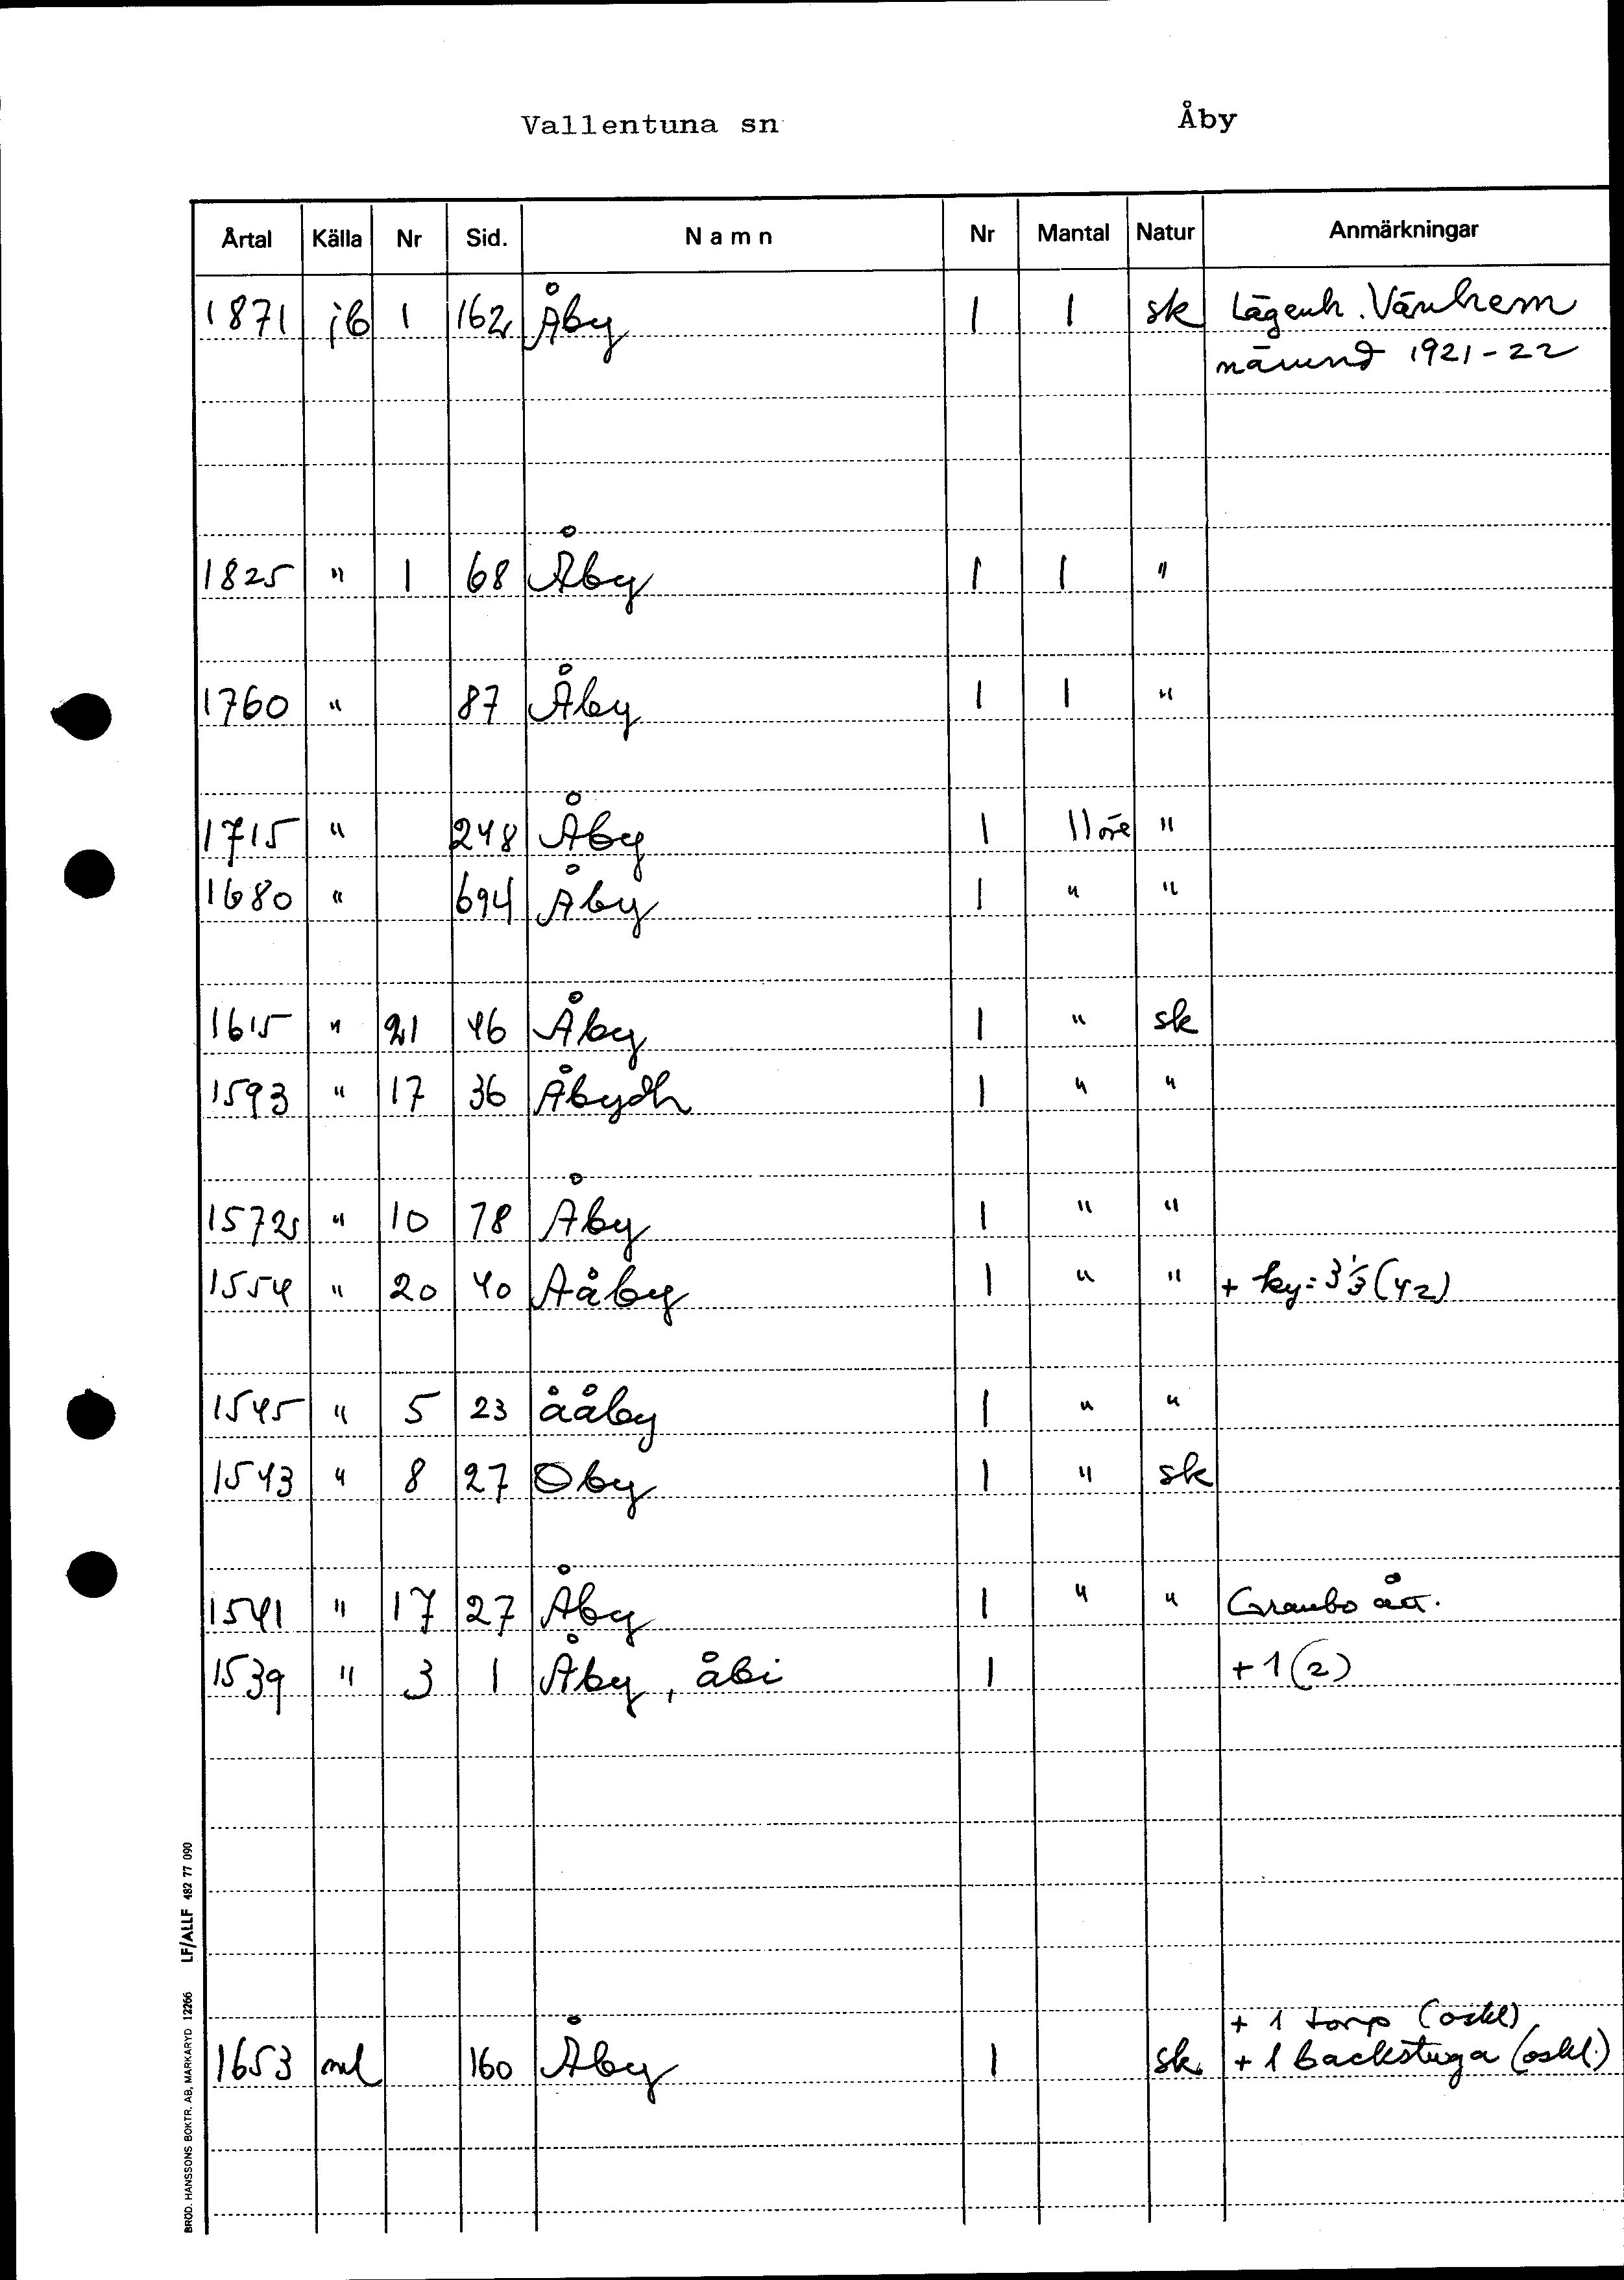 Vallentuna sn Åby
Årtal Källa Nr Sid. Namn Nr Mantal Natur Anmärkningar
1871 jb 1 162 Åby 1 1 sk Lägenh. Vänhem
nämnd 1921-22
1825 " 1 68 Åby 1 1 "
1760 " 87 Åby 1 1 "
1715 " 248 Åby 1 11 öre "
1680 " 694 Åby 1 " "
1615 " 21 46 Åby 1 " sk
1593 " 17 36 Åbydh 1 " "
1572 " 10 78 Åby 1 " "
1554 " 20 40 Aåby 1 " " + ky=3 1/3 (42)
1545 " 5 23 ååby 1 " "
1543 " 8 27 Oby 1 " sk
1541 " 17 27 Åby 1 " " Graubo ått.
1539 " 3 1 Åby, åbi 1 +1 (2)
+ 1 torp (oskl)
1653 ml 160 Åby 1 sk + 1 backstuga (oskl.)
BRÖD. HANSSONS BOKTR. AB, MARKARYD 12266 LF/ALLF 482 77 090